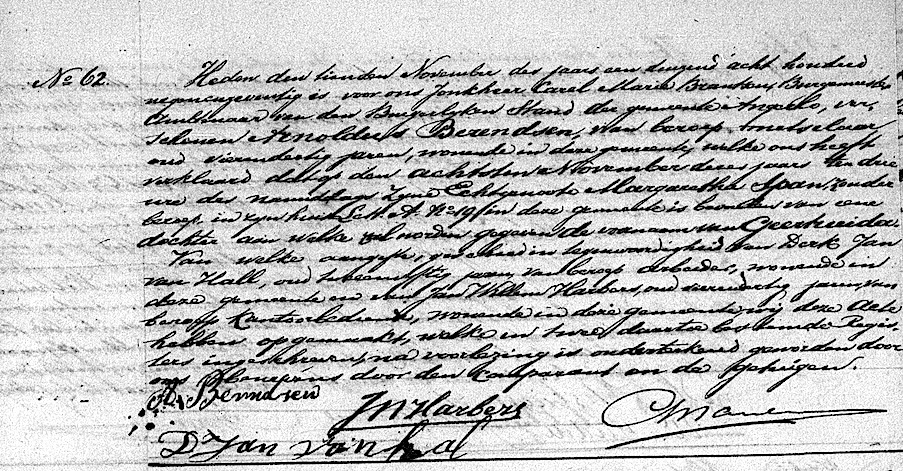 No 62.
Heden den tienden November des jaars een duizend acht honderd
negenennegentig is voor ons Jonkheer Carel Marie Brantsen, Burgemeester
Ambtenaar van den Burgerlijken Stand der gemeente Angerlo, ver-
schenen Arnoldus Berendsen, van beroep metselaar
oud vierendertig jaren, wonende in deze gemeente, welke ons heeft
verklaard dat op den achtsten November dezes jaars ten drie
ure des namiddags zijne Echtgenoote Margaretha Spaan, zonder
beroep, in zijn huis Lett. A. No 19 in deze gemeente is bevallen van eene
dochter aan welke zal worden gegeven de voornaam van Geerhuida.
Van welke aangifte, geschied in tegenwoordigheid van Derk Jan
van Hall, oud tweeenvijftig jaren, van beroep arbeider, wonende in
deze gemeente en van Jan Willem Harbers, oud vierendertig jaren, van
beroep kantoorbediende, wonende in deze gemeente wij deze Acte
hebben opgemaakt, welke in twee daartoe bestemde Regis-
ters ingeschreven, na voorlezing is onderteekend geworden door
ons benevens door den Comparant en de getuigen.
A. Berendsen
JW Harbers
D Jan van hal